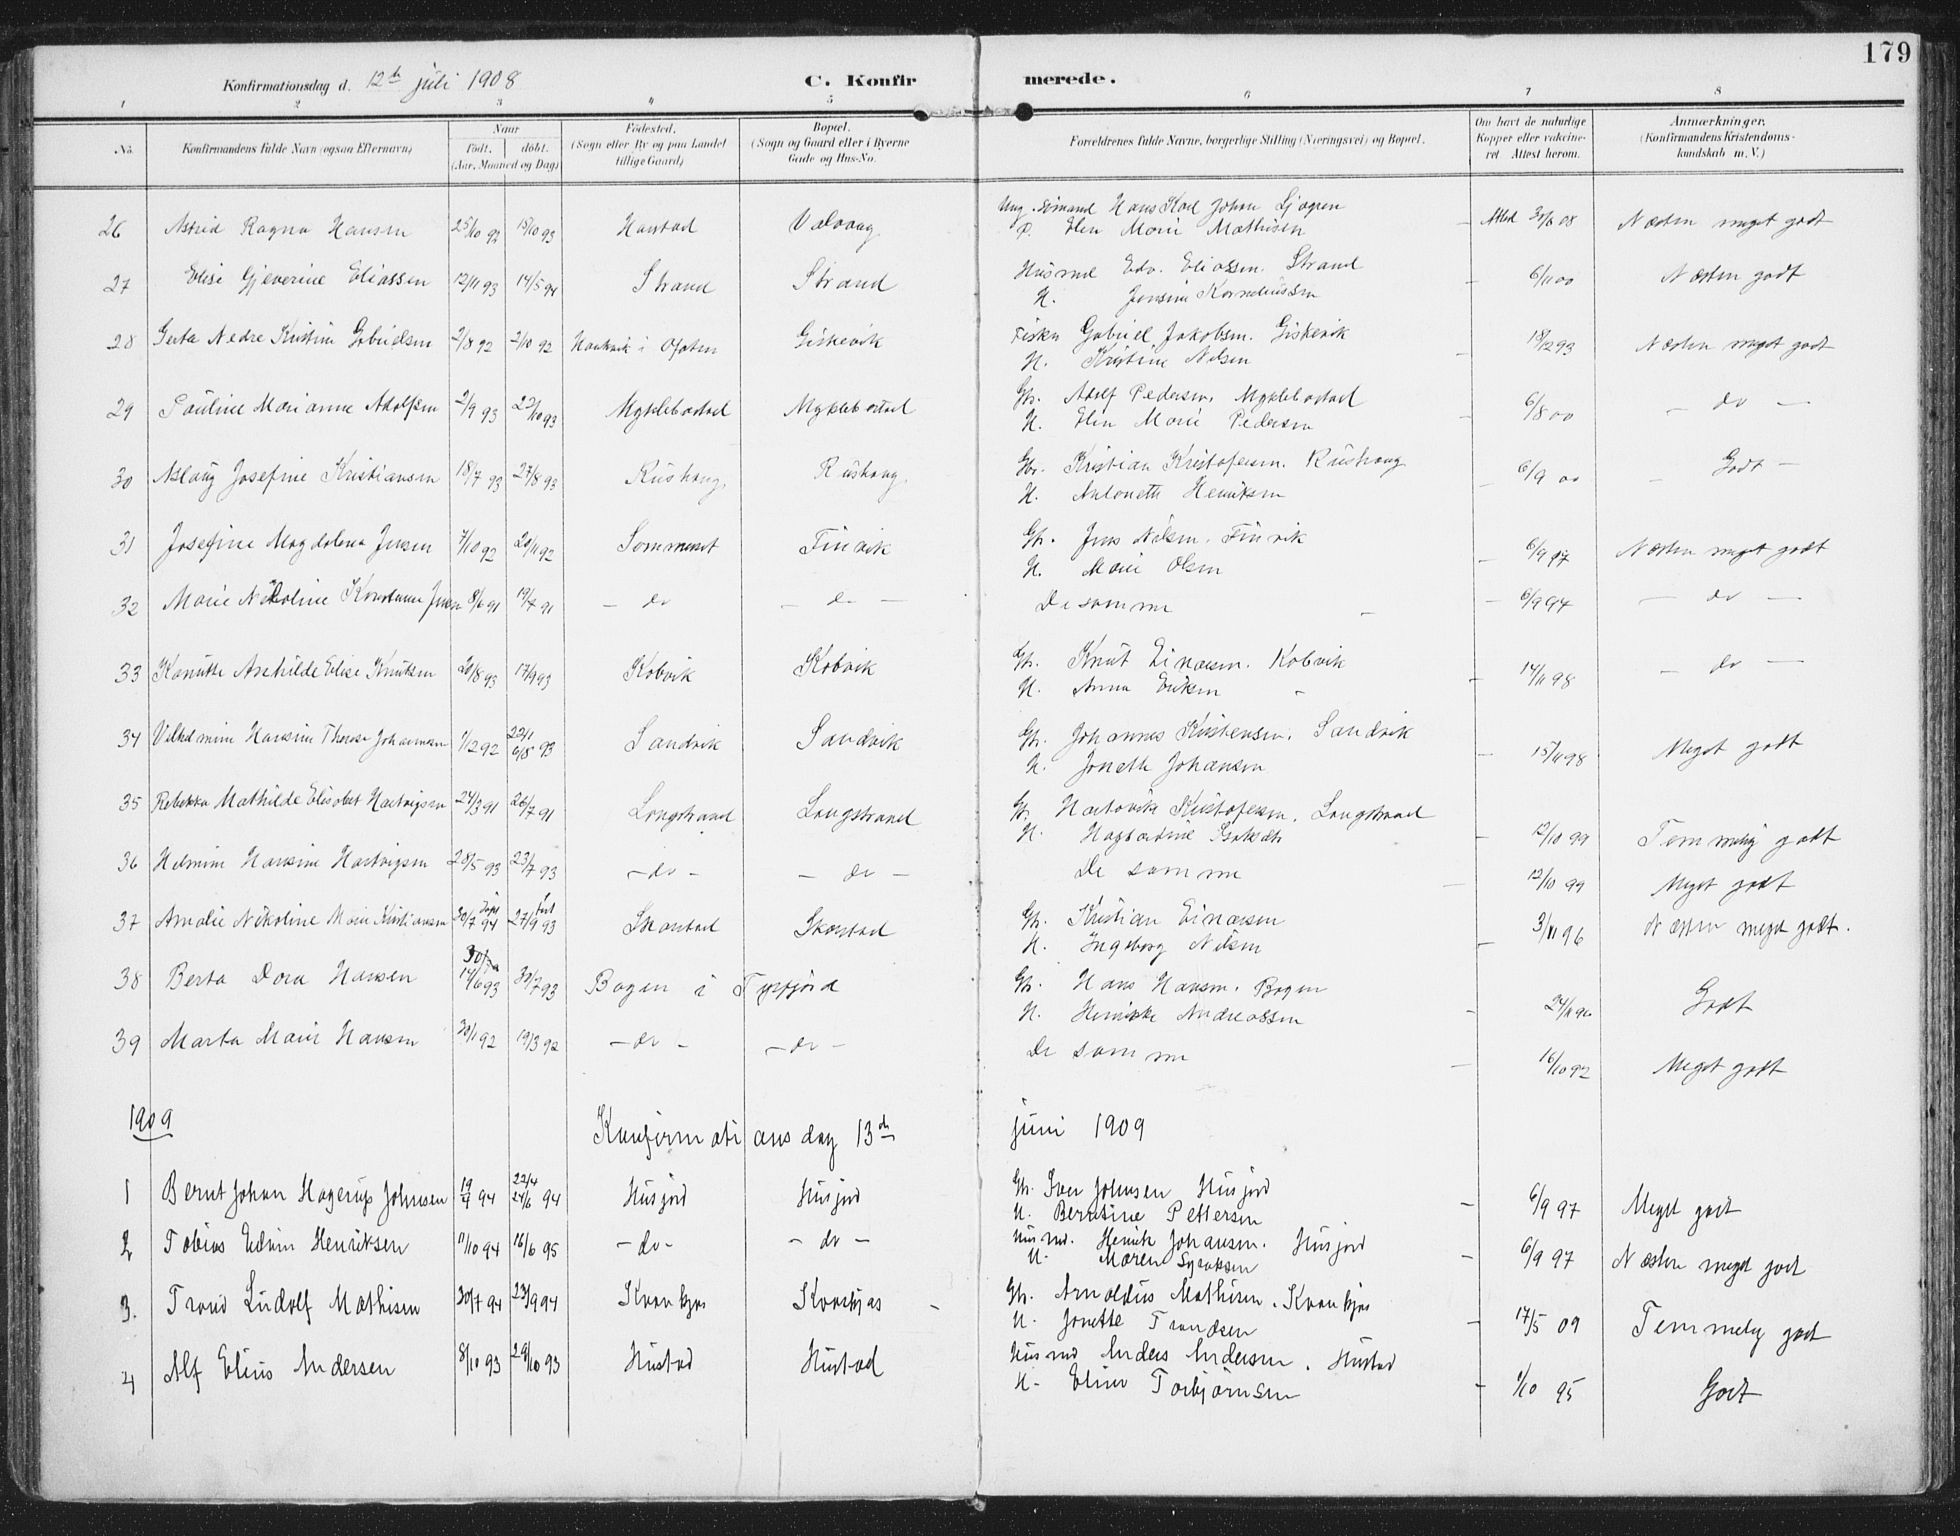 179
Konfirmationsdag d. 12te juli 1908 C. Konfirmerede.
1 2 3 4 5 6 7 8
No. Konfirmandens fulde Navn (ogsaa Efternavn) Naar Født. døbt. (Aar, Maaned og Dag) Fødested. (Sogn eller By og paa Landet tillige Gaard) Bopæl. (Sogn og Gaard eller i Byerne Gade og Hus-No. Forældrenes fulde Navne, borgerlige Stilling (Næringsvei) og Bopæl. Om havt de naturlige Kopper eller vakcineret. Attest herom. Anmærkninger. (Konfirmandens Kristendomskundskab m. V.)
26 Astrid Ragna Hansen 25/10 92 15/10 93 Harstad Ung. Hans Karl Johan Attest 30/6 08 Næsten meget godt
P. Elen Marie Mathisen
27 Elise Gjeverine Eliassen 12/11 93 14/5 94 Strand Strand Husmd Edv. Eliassen. Strand 6/11 00 Næsten godt
H. Jensine Korneliussen
28 Gerta Nedre Kristine Gabrielsen 2/8 92 2/10 92 i Ofoten Giskevik Fisker Gabriel Jakobsen. Giskevik 18/12 93 Næsten meget godt
H. Kristine Nilsen
29 Pauline Marianne Adolfsen 2/9 93 23/10 93 Myklebostad Myklebostad Gbr. Adolf Pedersen. Myklebostad 6/8 00 – do –
H. Elen Marie Pedersen
30 Aslaug Josefine Kristiansen 18/7 93 27/8 93 Rushaug Rushaug Gbr. Kristian Kristofersen. Rushaug 6/9 00 Godt –
H. Antonette Henriksen
31 Josefine Magdalena Jensen 7/10 92 20/11 92 Sommerset Finvik Gbr. Jens Nilsen. Finvik 6/9 97 Næsten meget godt
H. Marie Olsen
32 Marie Nikoline Konstanse Jensen 8/6 91 19/7 91 – do – do – De samme 6/9 94 – do –
33 Kanutte Arehilde Elise Knutsen 20/8 93 17/9 93 Kobvik Kobvik Gbr. Knut Einarsen. Kobvik 14/11 98 – do –
H. Anna Eriksen
34 Vilhelmine Hansine Therese Johannesen 1/12 92 22/1 6/8 93 Sandvik Sandvik Gbr. Johannes Kristensen. Sandvik 15/11 98 Meget godt
H. Jonette Johansen
35 Rebekka Mathilde Elisabet Hartvigsen 24/3 91 26/7 91 Langstrand Langstrand G. Hartvik Kristofersen. Langstrand 12/10 99 Temmelig godt
H. Hagbardine Isaksen
36 Helmine Hansine Hartvigsen 28/5 93 23/7 93 – do – – do – De samme 12/10 99 Meget godt
37 Amalie Nikoline Marie Kristiansen 30/7 94 27/9 93 Skarstad Skarstad Gbr. Kristian Einarsen 3/11 96 Næsten meget godt.
H. Ingeborg Nilsen
38 Berta Dora Hansen 14/6 93 30/7 93 Bogen i Tysfjord Gbr. Hans Hansen. Bogen 24/11 96 Godt
H. Henrikke Andreassen
39 Marta Marie Hansen 30/1 92 19/3 92 – do – – do – De samme 16/10 92 Meget godt
1909 Konfirmationsdag 13de juni 1909
1 Bernt Johan Hagerup Johnsen 19/4 94 22/4 24/6 94 Husjord Husjord Gbr. Iver Johnsen Husjord 6/9 97 Meget godt
H. Berntine Pettersen
2 Tobias Edvin Henriksen 11/10 94 16/6 95 – do – – do – Husmd. Henrik Johansen. Husjord 6/9 97 Næsten meget godt
H. Maren
3. Trond Ludolf Mathisen 30/7 94 23/9 94 Kvankjos Kvankjos Gbr. Arnoldus Mathisen. Kvankjos 17/5 09 Temmelig godt
H. Jonette Trondsen
4 Alf Elius Andersen 8/10 93 29/10 93 Hustad Hustad Husmd Anders Andersen. Hustad 1/10 95 Godt
H. Eline Torbjørnsen